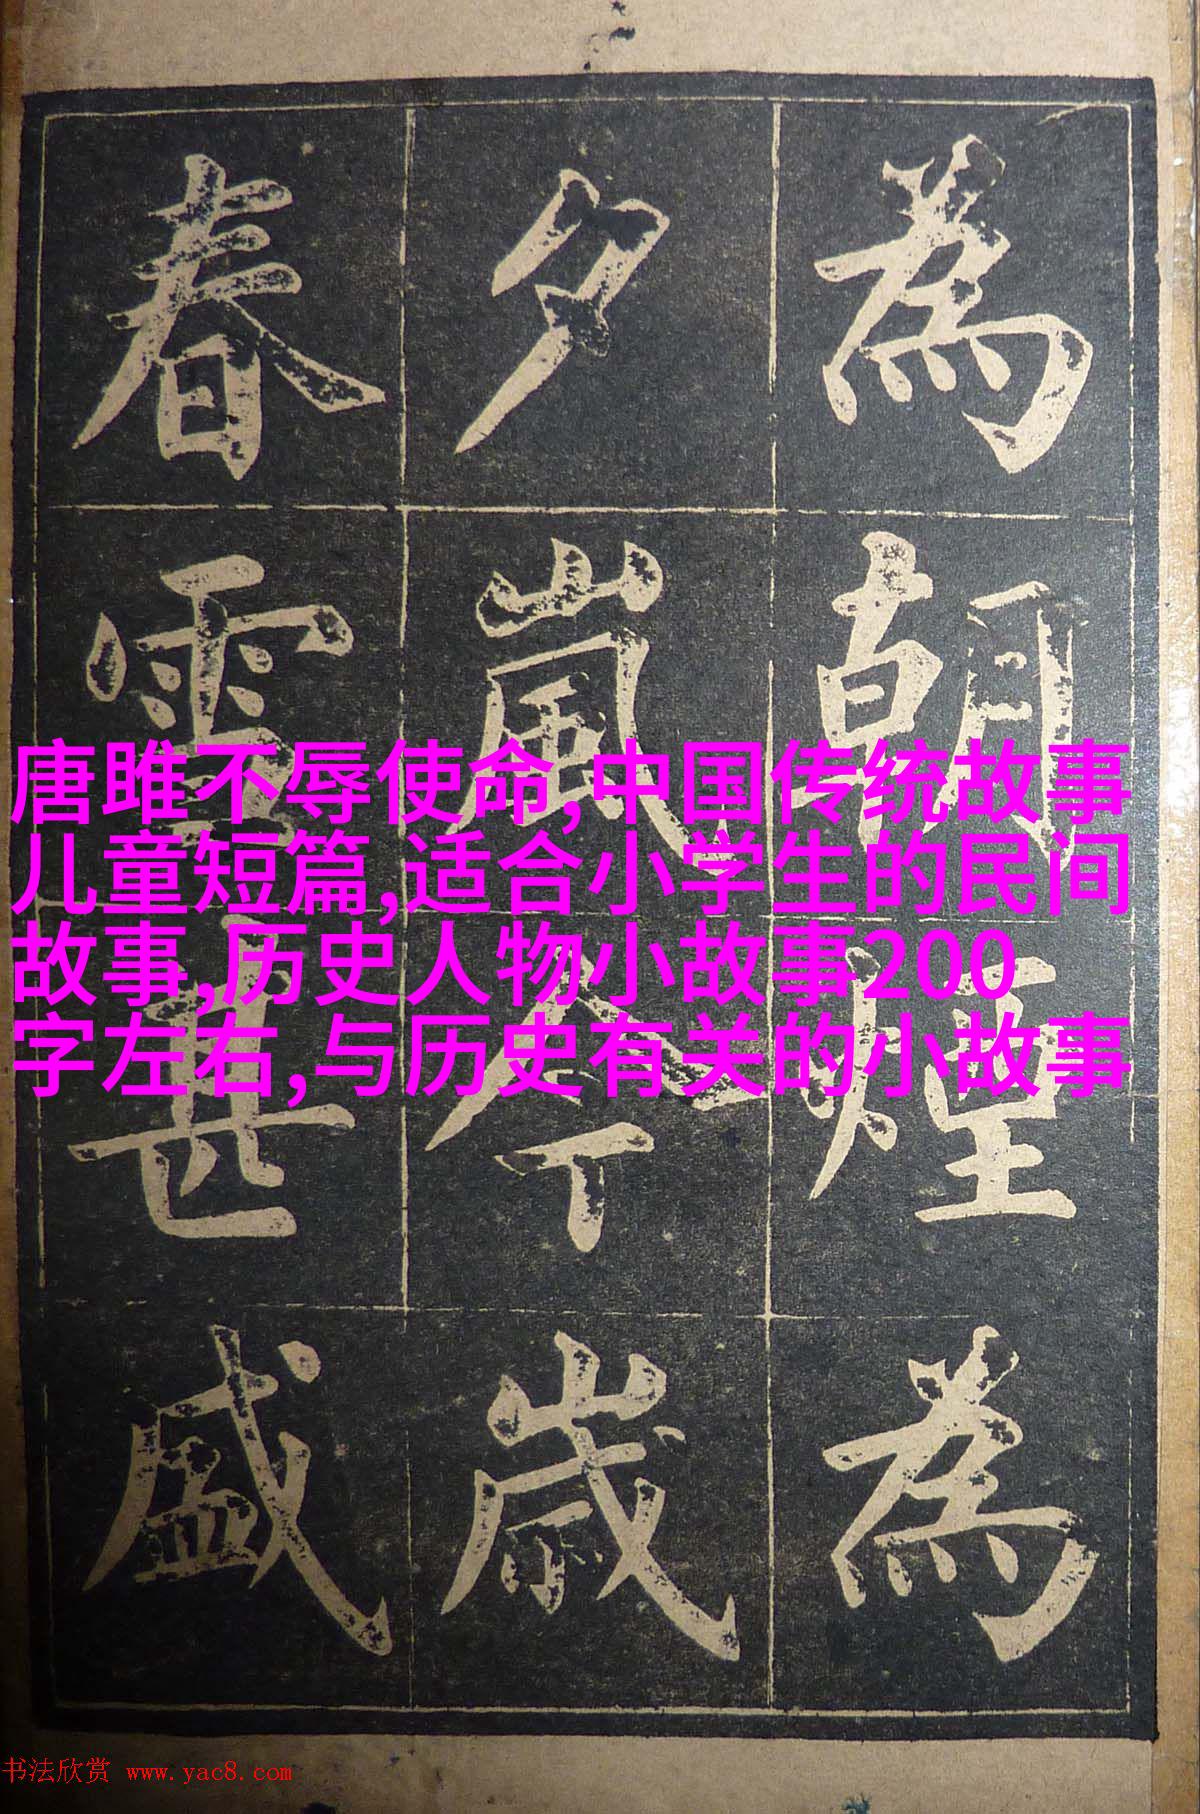 為朝煙為
夕嵐今歲
春雪甚盛
唐雎不辱使命,中国传统故事
儿童短篇,适合小学生的民间
故事,历史人物小故事200
字左右,与历史有关的小故事
书法欣赏 www.yac8.com